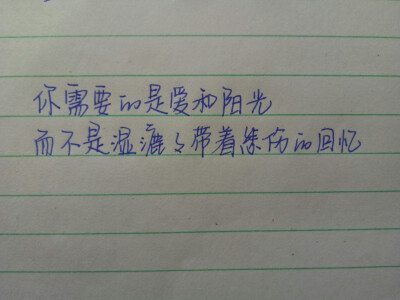 你需要的是爱和阳光
而不是湿漉々带着伤的回忆